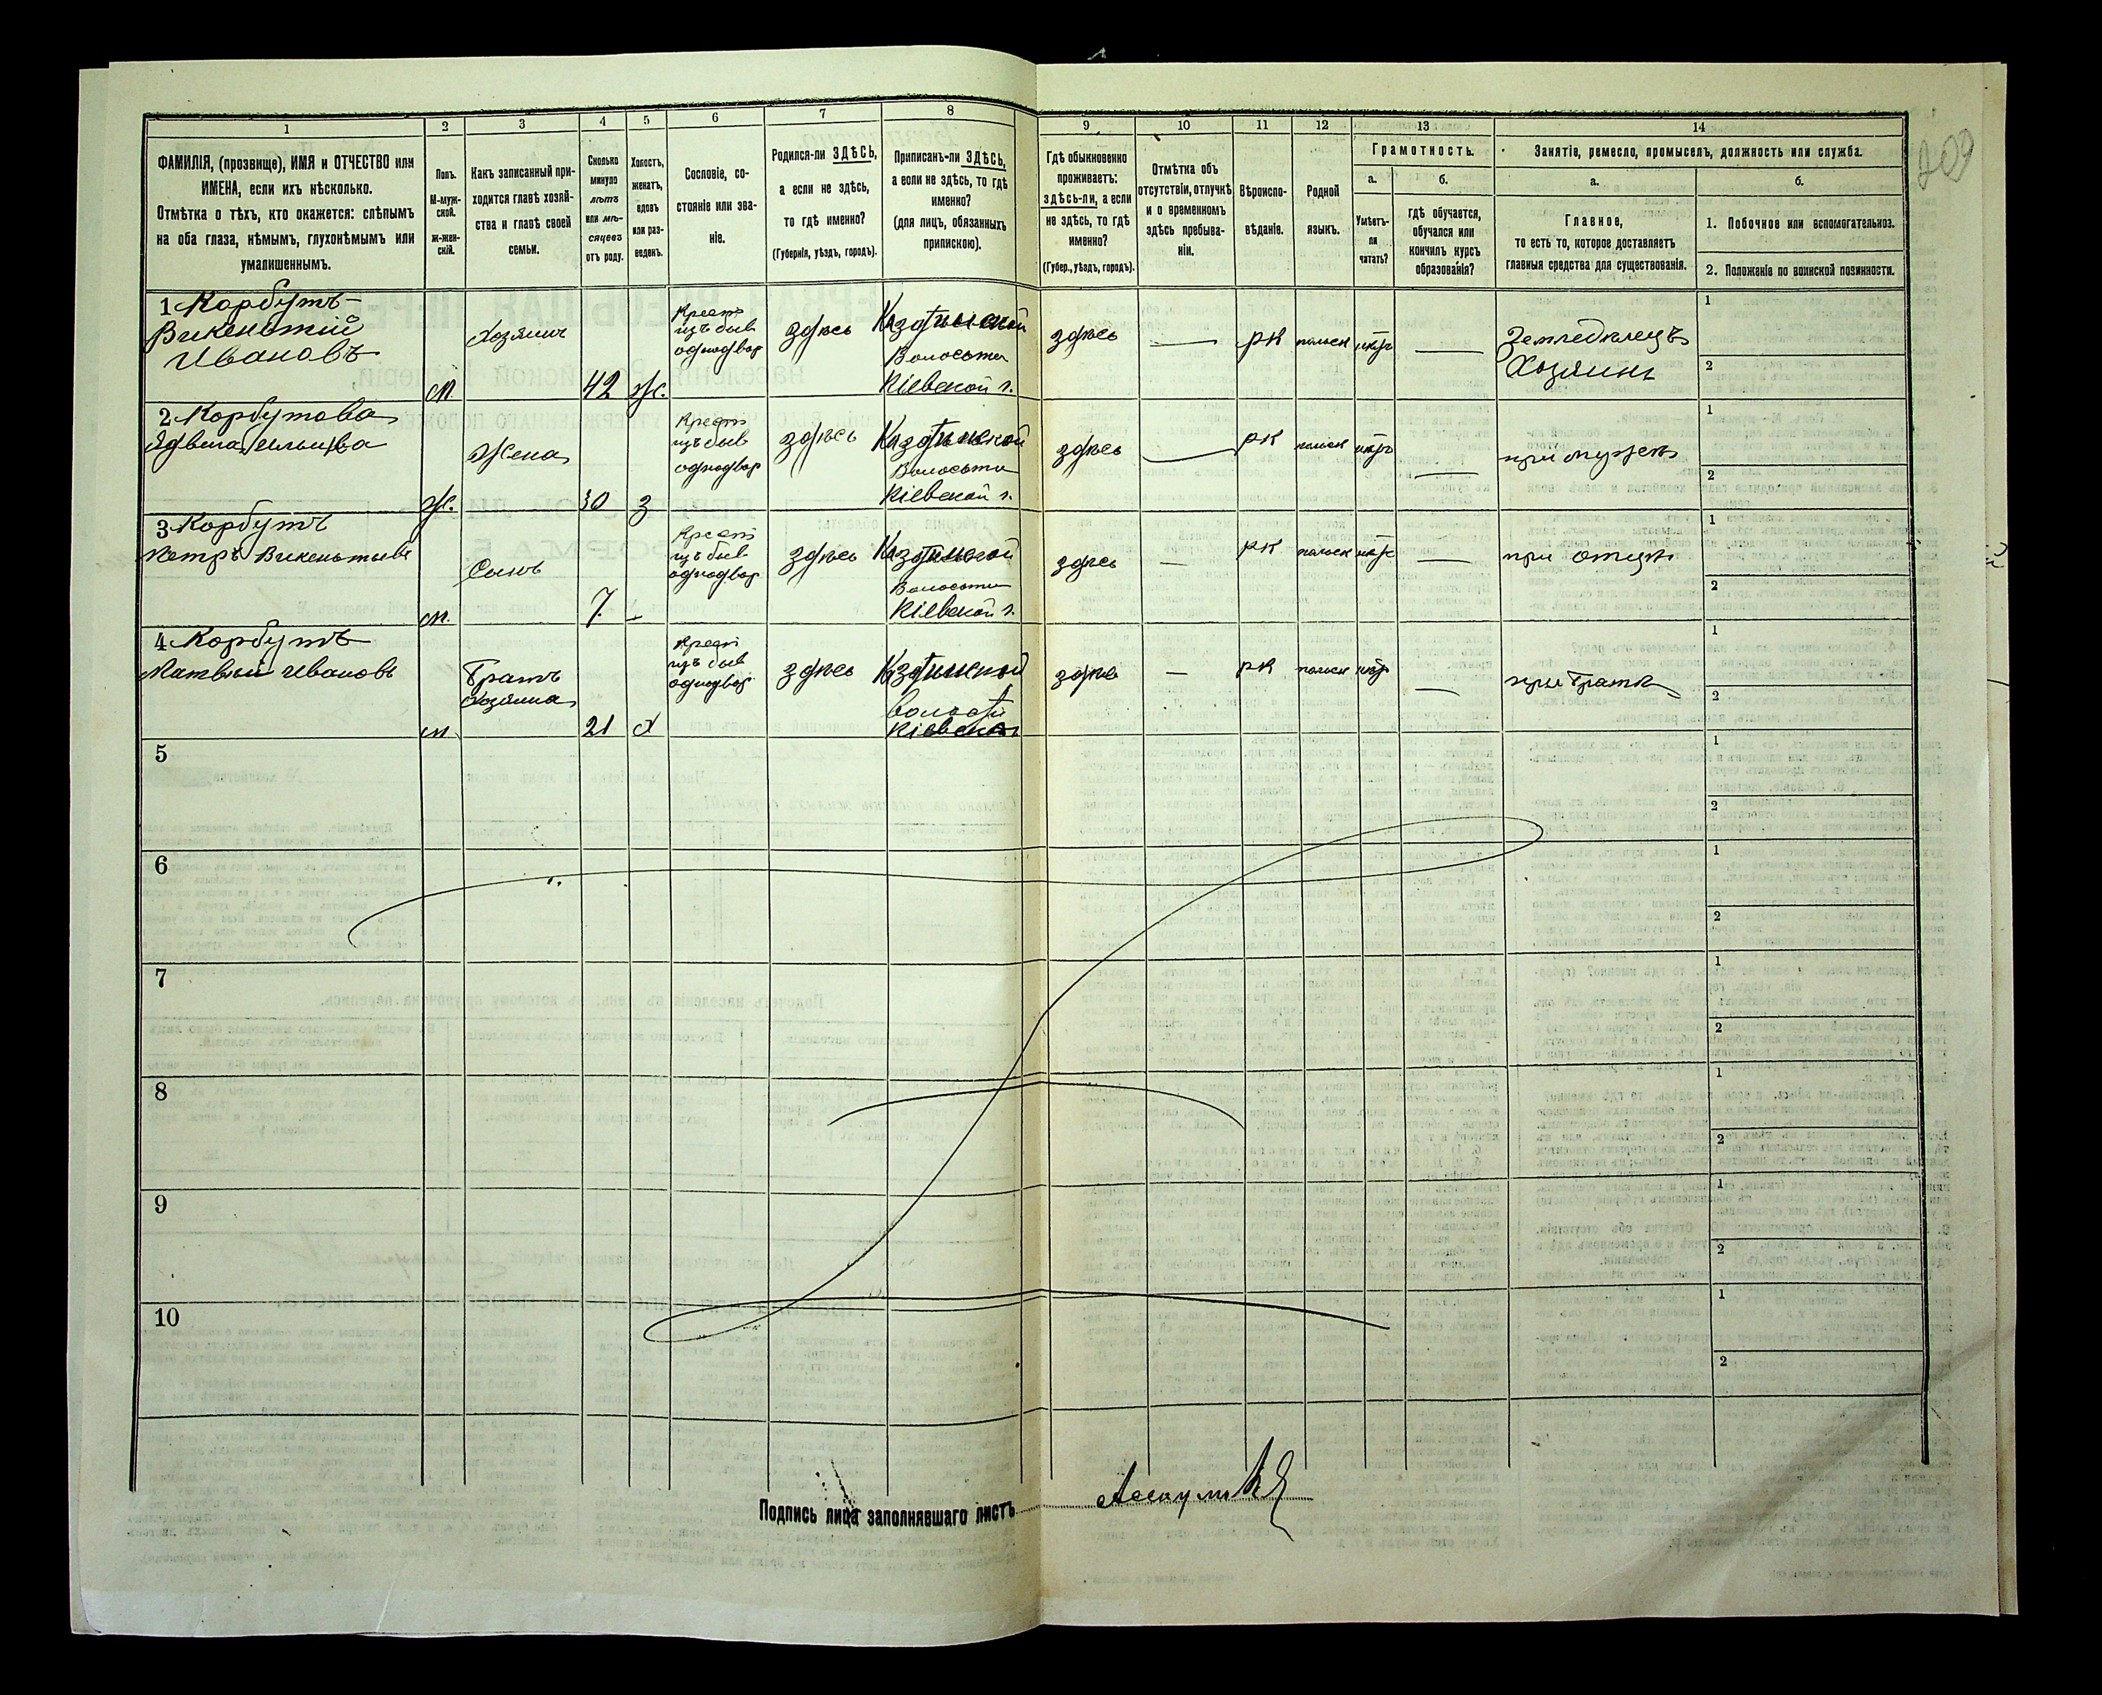 209
1
2
3
4
5
6
7
8
9
10
11
12
13
14
ФАМИЛІЯ, (прозвище), ИМЯ и ОТЧЕСТВО или
ИМЕНА, если ихъ нѣсколько.
Отмѣтка о тѣхъ, кто окажется: слѣпымъ
на оба глаза, нѣмымъ, глухонѣмымъ или
умалишеннымъ.
Полъ.
М-муж-
ской.
Ж-жен-
скій.
Какъ записанный при-
ходится главѣ хозяй-
ства и главѣ своей
семьи.
Сколько
минуло
лѣтъ
или мѣ-
сяцевъ
отъ роду.
Холостъ,
женатъ,
вдовъ
или раз-
веденъ.
Сословіе, со-
стояніе или зва-
ніе.
Родился-ли ЗДѢСЬ,
а если не здѣсь,
то гдѣ именно?
(Губернія, уѣздъ, городъ).
Приписанъ-ли ЗДѢСЬ,
а если не здѣсь, то гдѣ
именно?
(для лицъ, обязанныхъ
припискою).
Гдѣ обыкновенно
проживаетъ:
здѣсь-ли, а если
не здѣсь, то гдѣ
именно?
(Губер., уѣздъ, городъ).
Отмѣтка объ
отсутствіи, отлучкѣ
и о временномъ
здѣсь пребыва-
ніи.
Вѣроиспо-
вѣданіе.
Родной
языкъ.
Грамотность.
а.
б.
Умѣетъ-
ли
читать?
гдѣ обучается,
обучался или
кончилъ курсъ
образованія?
Занятіе, ремесло, промыселъ, должность или служба.
а.
б.
Главное,
то есть то, которое доставляетъ
главныя средства для существованія.
1. Побочное или вспомогательное.
2. Положеніе по воинской повинности.
1 Корбутъ
Викентій
Ивановъ
м
Хозяинъ
42
ж.
Крест
изъ быв
однодвор
здѣсь
Волости
Кіевской г.
здѣсь
—
рк
польск
нѣтъ
—
Земледѣлецъ
Хозяинъ
1
2
2 Корбутова
Ядвига
ж.
Жена
30
з
Крест
изъ быв
однодвор
здѣсь
Волости
Кіевской г.
здѣсь
—
рк
польск
нѣтъ
—
при мужѣ
1
2
3 Корбутъ
Петръ Викентьевъ
м.
Сынъ
7.
—
Крест
изъ быв
однодвор
здѣсь
Волости
Кіевской г.
здѣсь
—
рк
польск
нѣтъ
—
при отцѣ
1
2
4 Корбутъ
Матвѣй Ивановъ
м
Братъ
Хозяина
21
х
Крест
изъ быв
однодвор
здѣсь
волости
Кіевской г
здѣсь
—
рк
польск
нѣтъ
—
при братѣ
1
2
5
1
2
6
1
2
7
1
2
8
1
2
9
1
2
10
1
2
Подпись лица заполнявшаго листъ